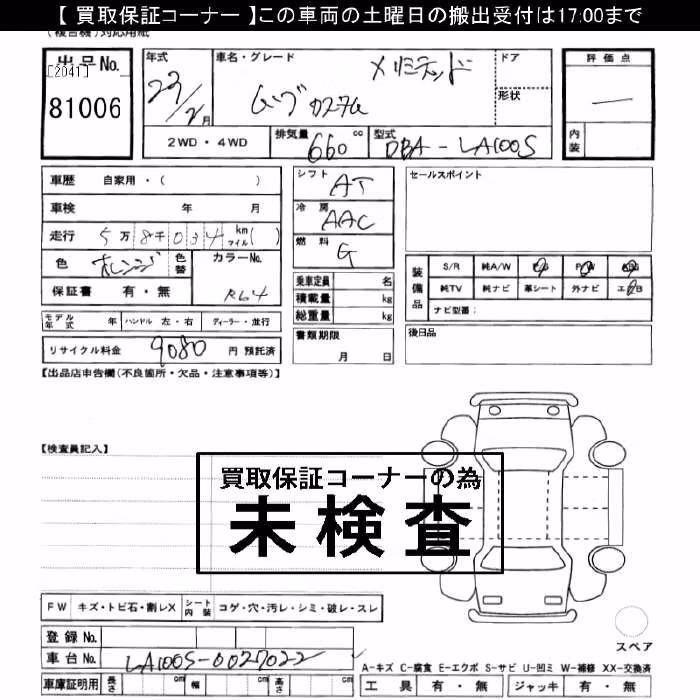 【 買取保証コーナー 】この車両の土曜日の搬出受付は17:00まで
(複合機)対応用紙
出品No.
[2041]
81006
年式
22/2月
車名・グレード
ムーブカスタム
Xリミテッド
ドア
形状
2WD・4WD
排気量 660 cc
型式 DBA-LA100S
評価点
—
内装
車歴 自家用・( )
車検 年 月
走行 5万8千034 km マイル( )
色 オレンジ 色替 カラーNo. R64
保証書 有・無
モデル年式 年 ハンドル 左・右 ディーラー・並行
リサイクル料金 9080 円 預託済
シフト AT
冷房 AAC
燃料 G
乗車定員 名
積載量 kg
総重量 kg
書類期限
月 日
セールスポイント
装備品
S/R 純A/W P/S P/W ABS
純TV 純ナビ 革シート 外ナビ エアB
ナビ型番:
後日品
【出品店申告欄(不良個所・欠品・注意事項等)】
【検査員記入】
買取保証コーナーの為
未検査
FW キズ・トビ石・割レX シート内装 コゲ・穴・汚レ・シミ・破レ・スレ
登録No.
車台No. LA100S-0027022
車庫証明用 長さ cm 幅 cm 高さ cm
スペア
A-キズ C-腐食 E-エクボ S-サビ U-凹ミ W-補修 XX-交換済
工具 有・無 ジャッキ 有・無